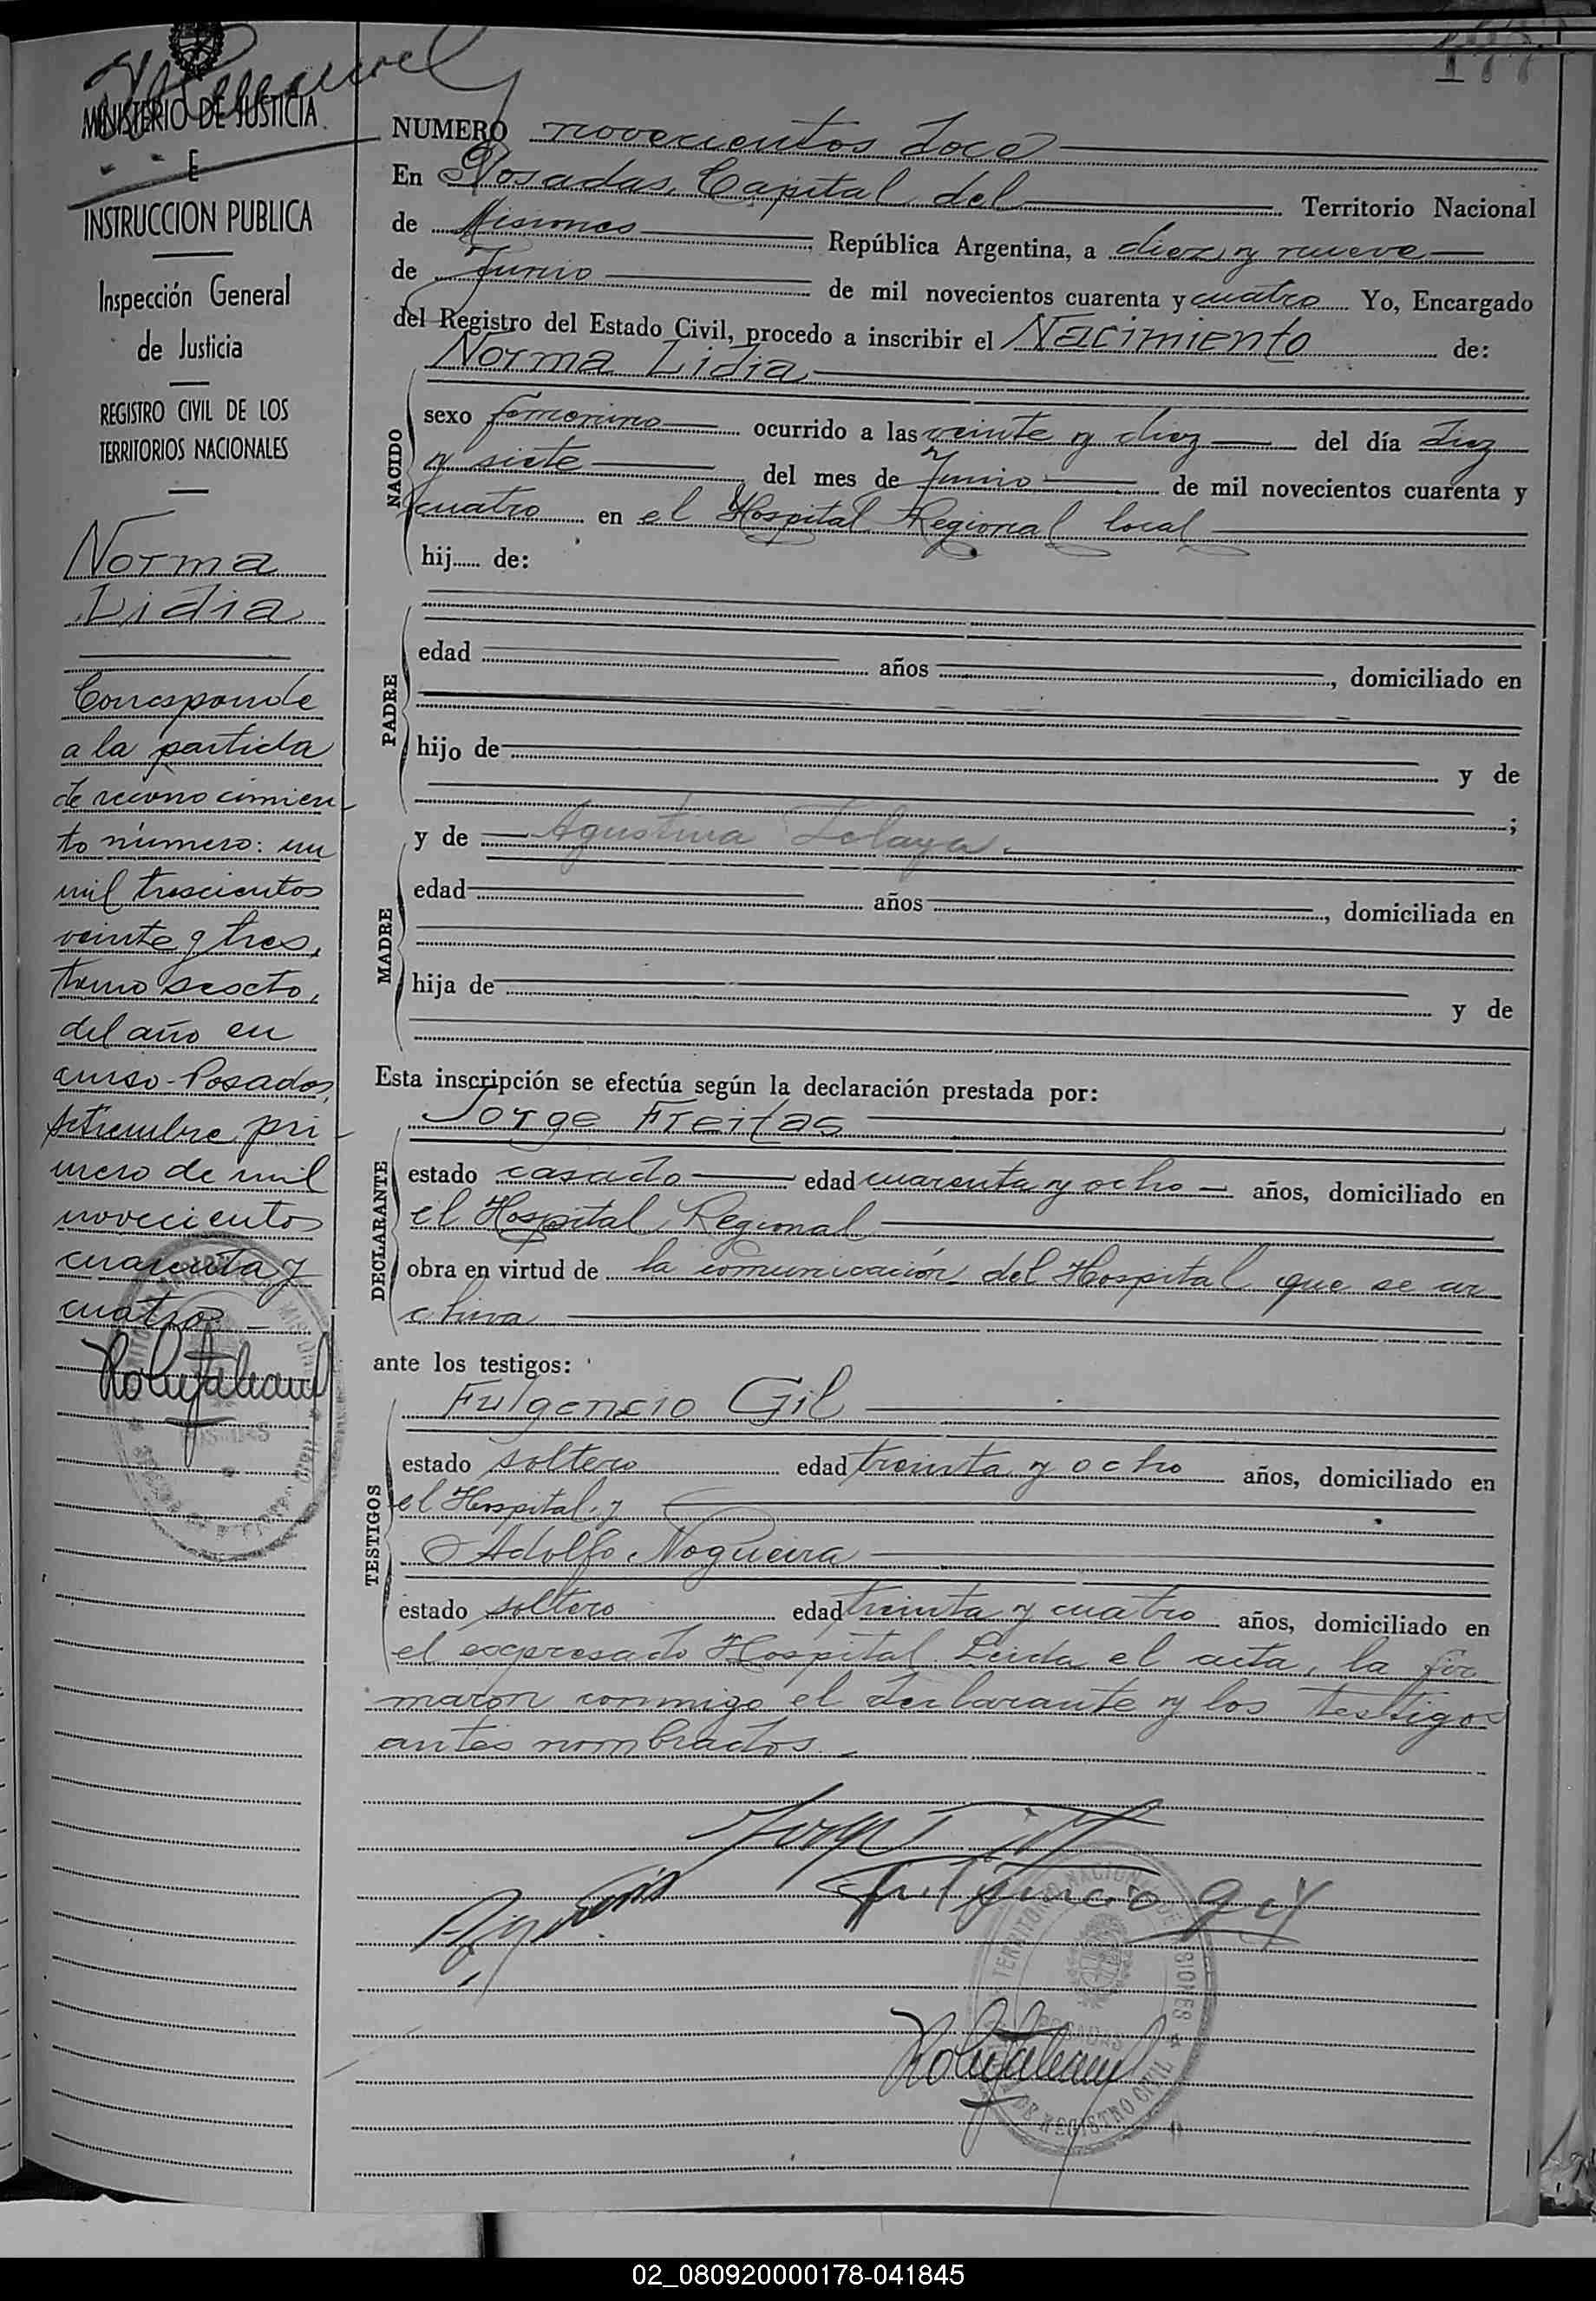 MINISTERIO DE JUSTICIA
E
INSTRUCCION PUBLICA
Inspección General
de Justicia
REGISTRO CIVIL DE LOS
TERRITORIOS NACIONALES
Norma
Lidia
Corresponde
a la partida
de reconocimien-
to número: un
mil trescientos
veinte y tres,
tomo sexto,
del año en
curso-Posadas,
setiembre pri-
mero de mil
novecientos
cuarenta y
cuatro-
NUMERO novecientos doce
En Posadas, Capital del Territorio Nacional
de Misiones República Argentina, a diez y nueve
de Junio de mil novecientos cuarenta y cuatro Yo, Encargado
del Registro del Estado Civil, procedo a inscribir el Nacimiento de:
Norma Lidia
NACIDO
sexo femenino ocurrido a las veinte y diez del día diez
y siete del mes de Junio de mil novecientos cuarenta y
cuatro en el Hospital Regional local
hij..... de:
PADRE
edad años , domiciliado en
hijo de y de
;
MADRE
y de Agustina Zelaya.
edad años , domiciliada en
hija de y de
Esta inscripción se efectúa según la declaración prestada por:
DECLARANTE
Jorge Freitas
estado casado edad cuarenta y ocho años, domiciliado en
el Hospital Regional
obra en virtud de la comunicación del Hospital que se ar
chiva
ante los testigos:
TESTIGOS
Fulgencio Gil
estado soltero edad treinta y ocho años, domiciliado en
el Hospital y
Adolfo Nogueira
estado soltero edad treinta y cuatro años, domiciliado en
el expresado Hospital. Leida el acta, la fir
maron conmigo el declarante y los testigos
antes nombrados.-
Fulgencio Gil
TERRITORIO NACIONAL DE MISIONES
POSADAS
DE REGISTRO CIVIL
02_080920000178-041845